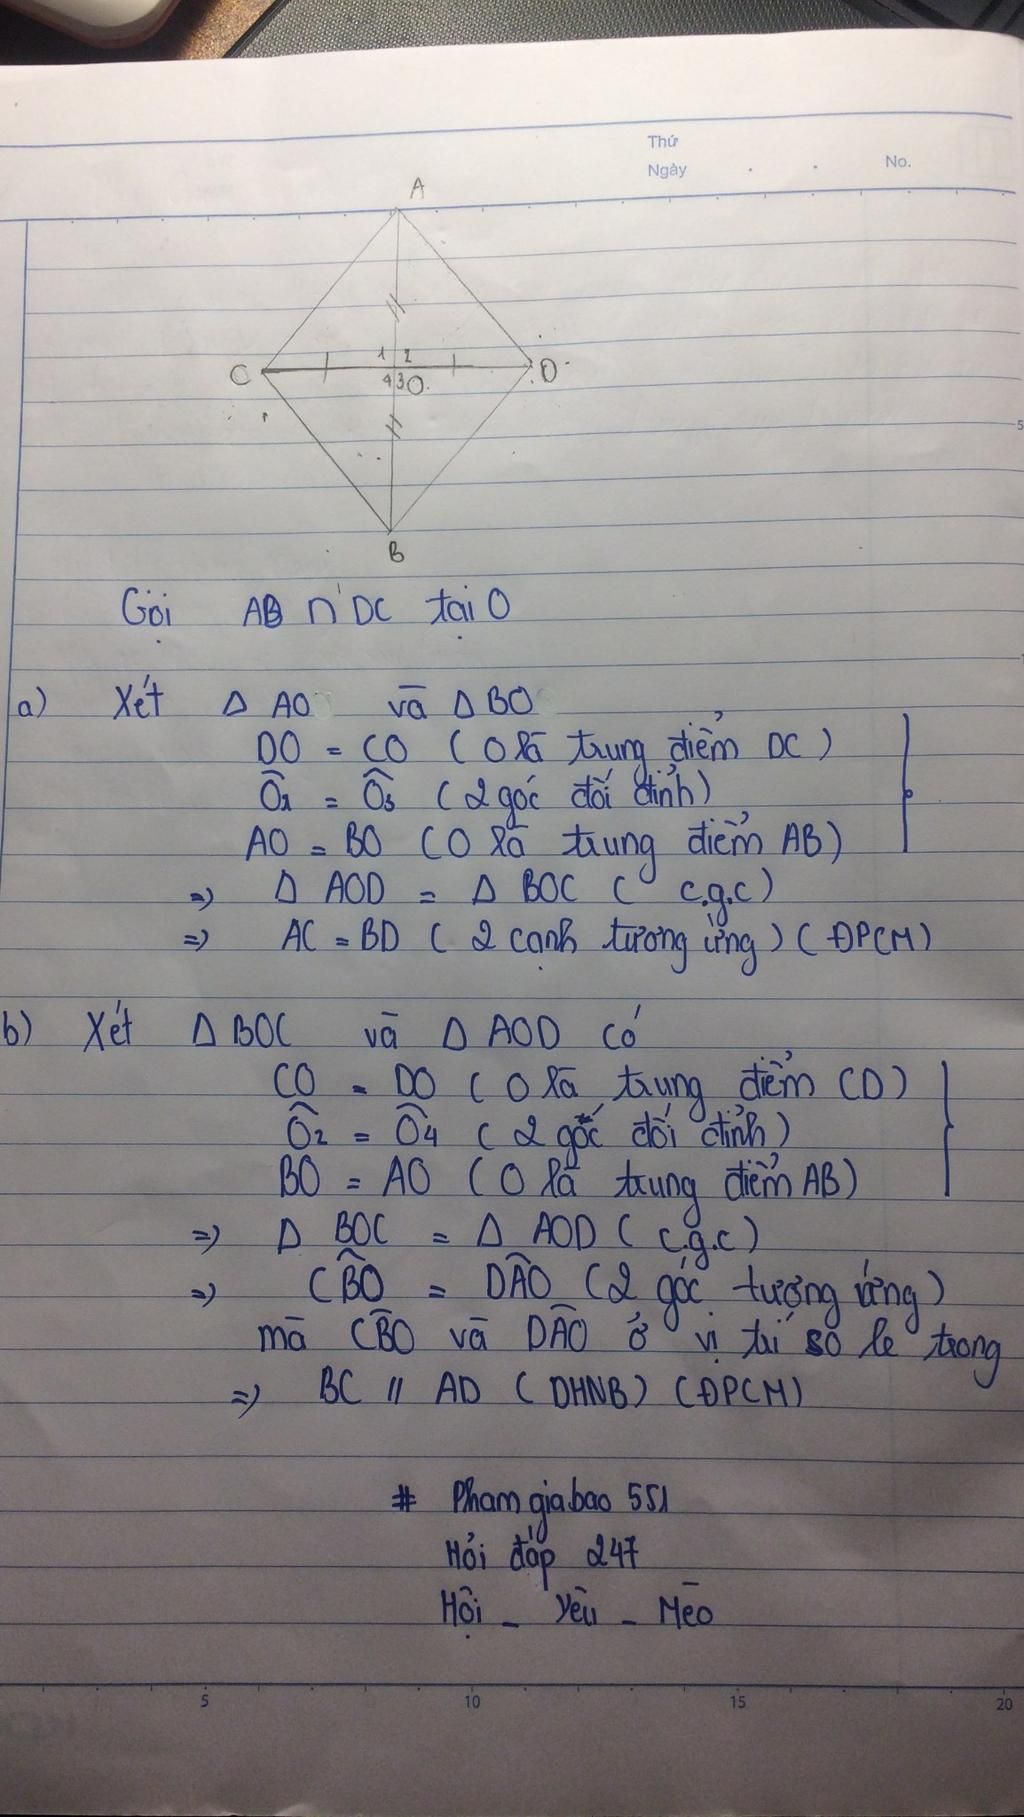 Thứ
Ngày . . No.
A
C 1 2 D
4 3 O
B
5
Gọi AB ∩ DC tại O
a) Xét Δ AO và Δ BO
DO = CO ( O là trung điểm DC )
Ô1 = Ô3 ( 2 góc đối đỉnh )
AO = BO ( O là trung điểm AB )
=> Δ AOD = Δ BOC ( c.g.c )
=> AC = BD ( 2 cạnh tương ứng ) ( ĐPCM )
b) Xét Δ BOC và Δ AOD có
CO = DO ( O là trung điểm CD )
Ô2 = Ô4 ( 2 góc đối đỉnh )
BO = AO ( O là trung điểm AB )
=> Δ BOC = Δ AOD ( c.g.c )
=> CB̂O = DÂO ( 2 góc tương ứng )
mà CB̂O và DÂO ở vị trí so le trong
=> BC // AD ( DHNB ) ( ĐPCM )
# Phamgiabao 551
Hỏi đáp 247
Hội _ Yêu _ Mèo
5 10 15 20